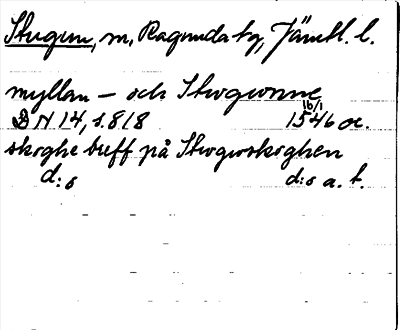 Stugun, m, Ragunda tg, Jämtl. l.
myllan – och Stwgwnne
16/1
D N 14, s. 818 1546 or.
skoghe twff på Stwgwskoghen
d:o d:o a. t.